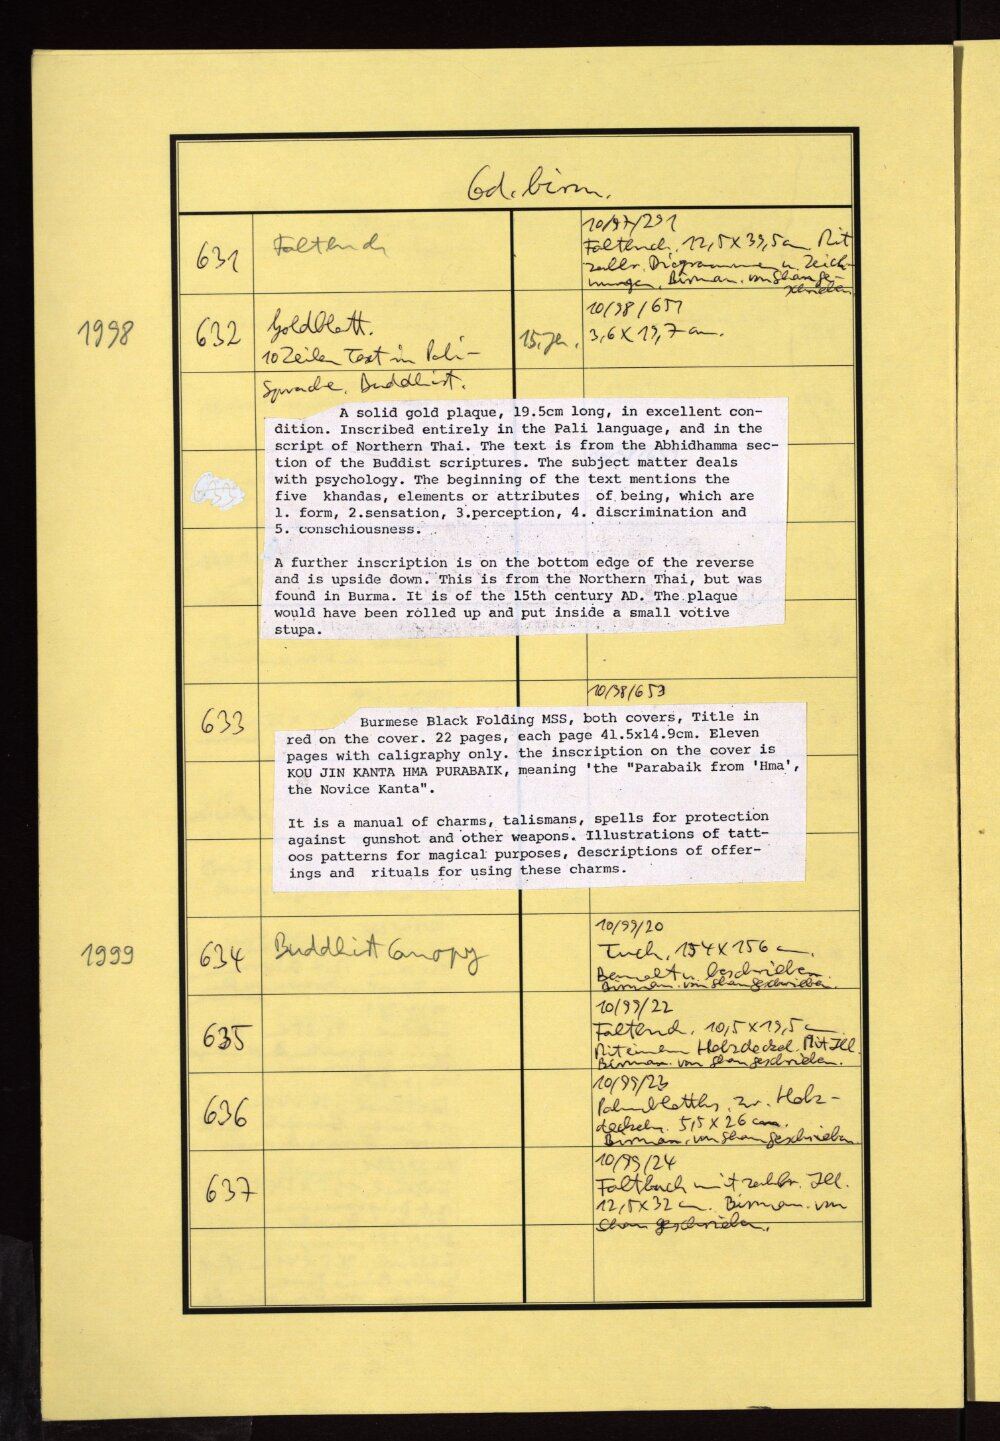 Cod. birm.
631
Faltbuch
10/97/291
Faltbuch. 12,5 x 39,5 cm. Mit
zahlr. Diagrammen u. Zeich-
nungen. Birman. von Shan ge-
schrieben
1998
632
Goldblatt.
10 Zeilen Text in Pali-
Sprache. Buddhist.
15. Jh.
10/98/651
3,6 x 19,7 cm.
A solid gold plaque, 19.5cm long, in excellent con-
dition. Inscribed entirely in the Pali language, and in the
script of Northern Thai. The text is from the Abhidhamma sec-
tion of the Buddist scriptures. The subject matter deals
with psychology. The beginning of the text mentions the
five khandas, elements or attributes of being, which are
1. form, 2.sensation, 3.perception, 4. discrimination and
5. conschiousness.
A further inscription is on the bottom edge of the reverse
and is upside down. This is from the Northern Thai, but was
found in Burma. It is of the 15th century AD. The plaque
would have been rolled up and put inside a small votive
stupa.
633
10/98/653
Burmese Black Folding MSS, both covers, Title in
red on the cover. 22 pages, each page 41.5x14.9cm. Eleven
pages with caligraphy only. the inscription on the cover is
KOU JIN KANTA HMA PURABAIK, meaning 'the "Parabaik from 'Hma',
the Novice Kanta".
It is a manual of charms, talismans, spells for protection
against gunshot and other weapons. Illustrations of tatt-
oos patterns for magical purposes, descriptions of offer-
ings and rituals for using these charms.
1999
634
Buddhist Canopy
10/99/20
Tuch, 154 x 156 cm.
Bemalt u. beschrieben.
Birman. von Shan geschrieben.
635
10/99/22
Faltbuch. 10,5 x 19,5 cm
Mit einem Holzdeckel. Mit Ill.
Birman. von Shan geschrieben.
636
10/99/23
Palmblatths. zw. Holz-
deckeln. 5,5 x 26 cm.
Birman. von Shan geschrieben
637
10/99/24
Faltbuch mit zahlr. Ill.
12,5 x 32 cm. Birman. von
Shan geschrieben.